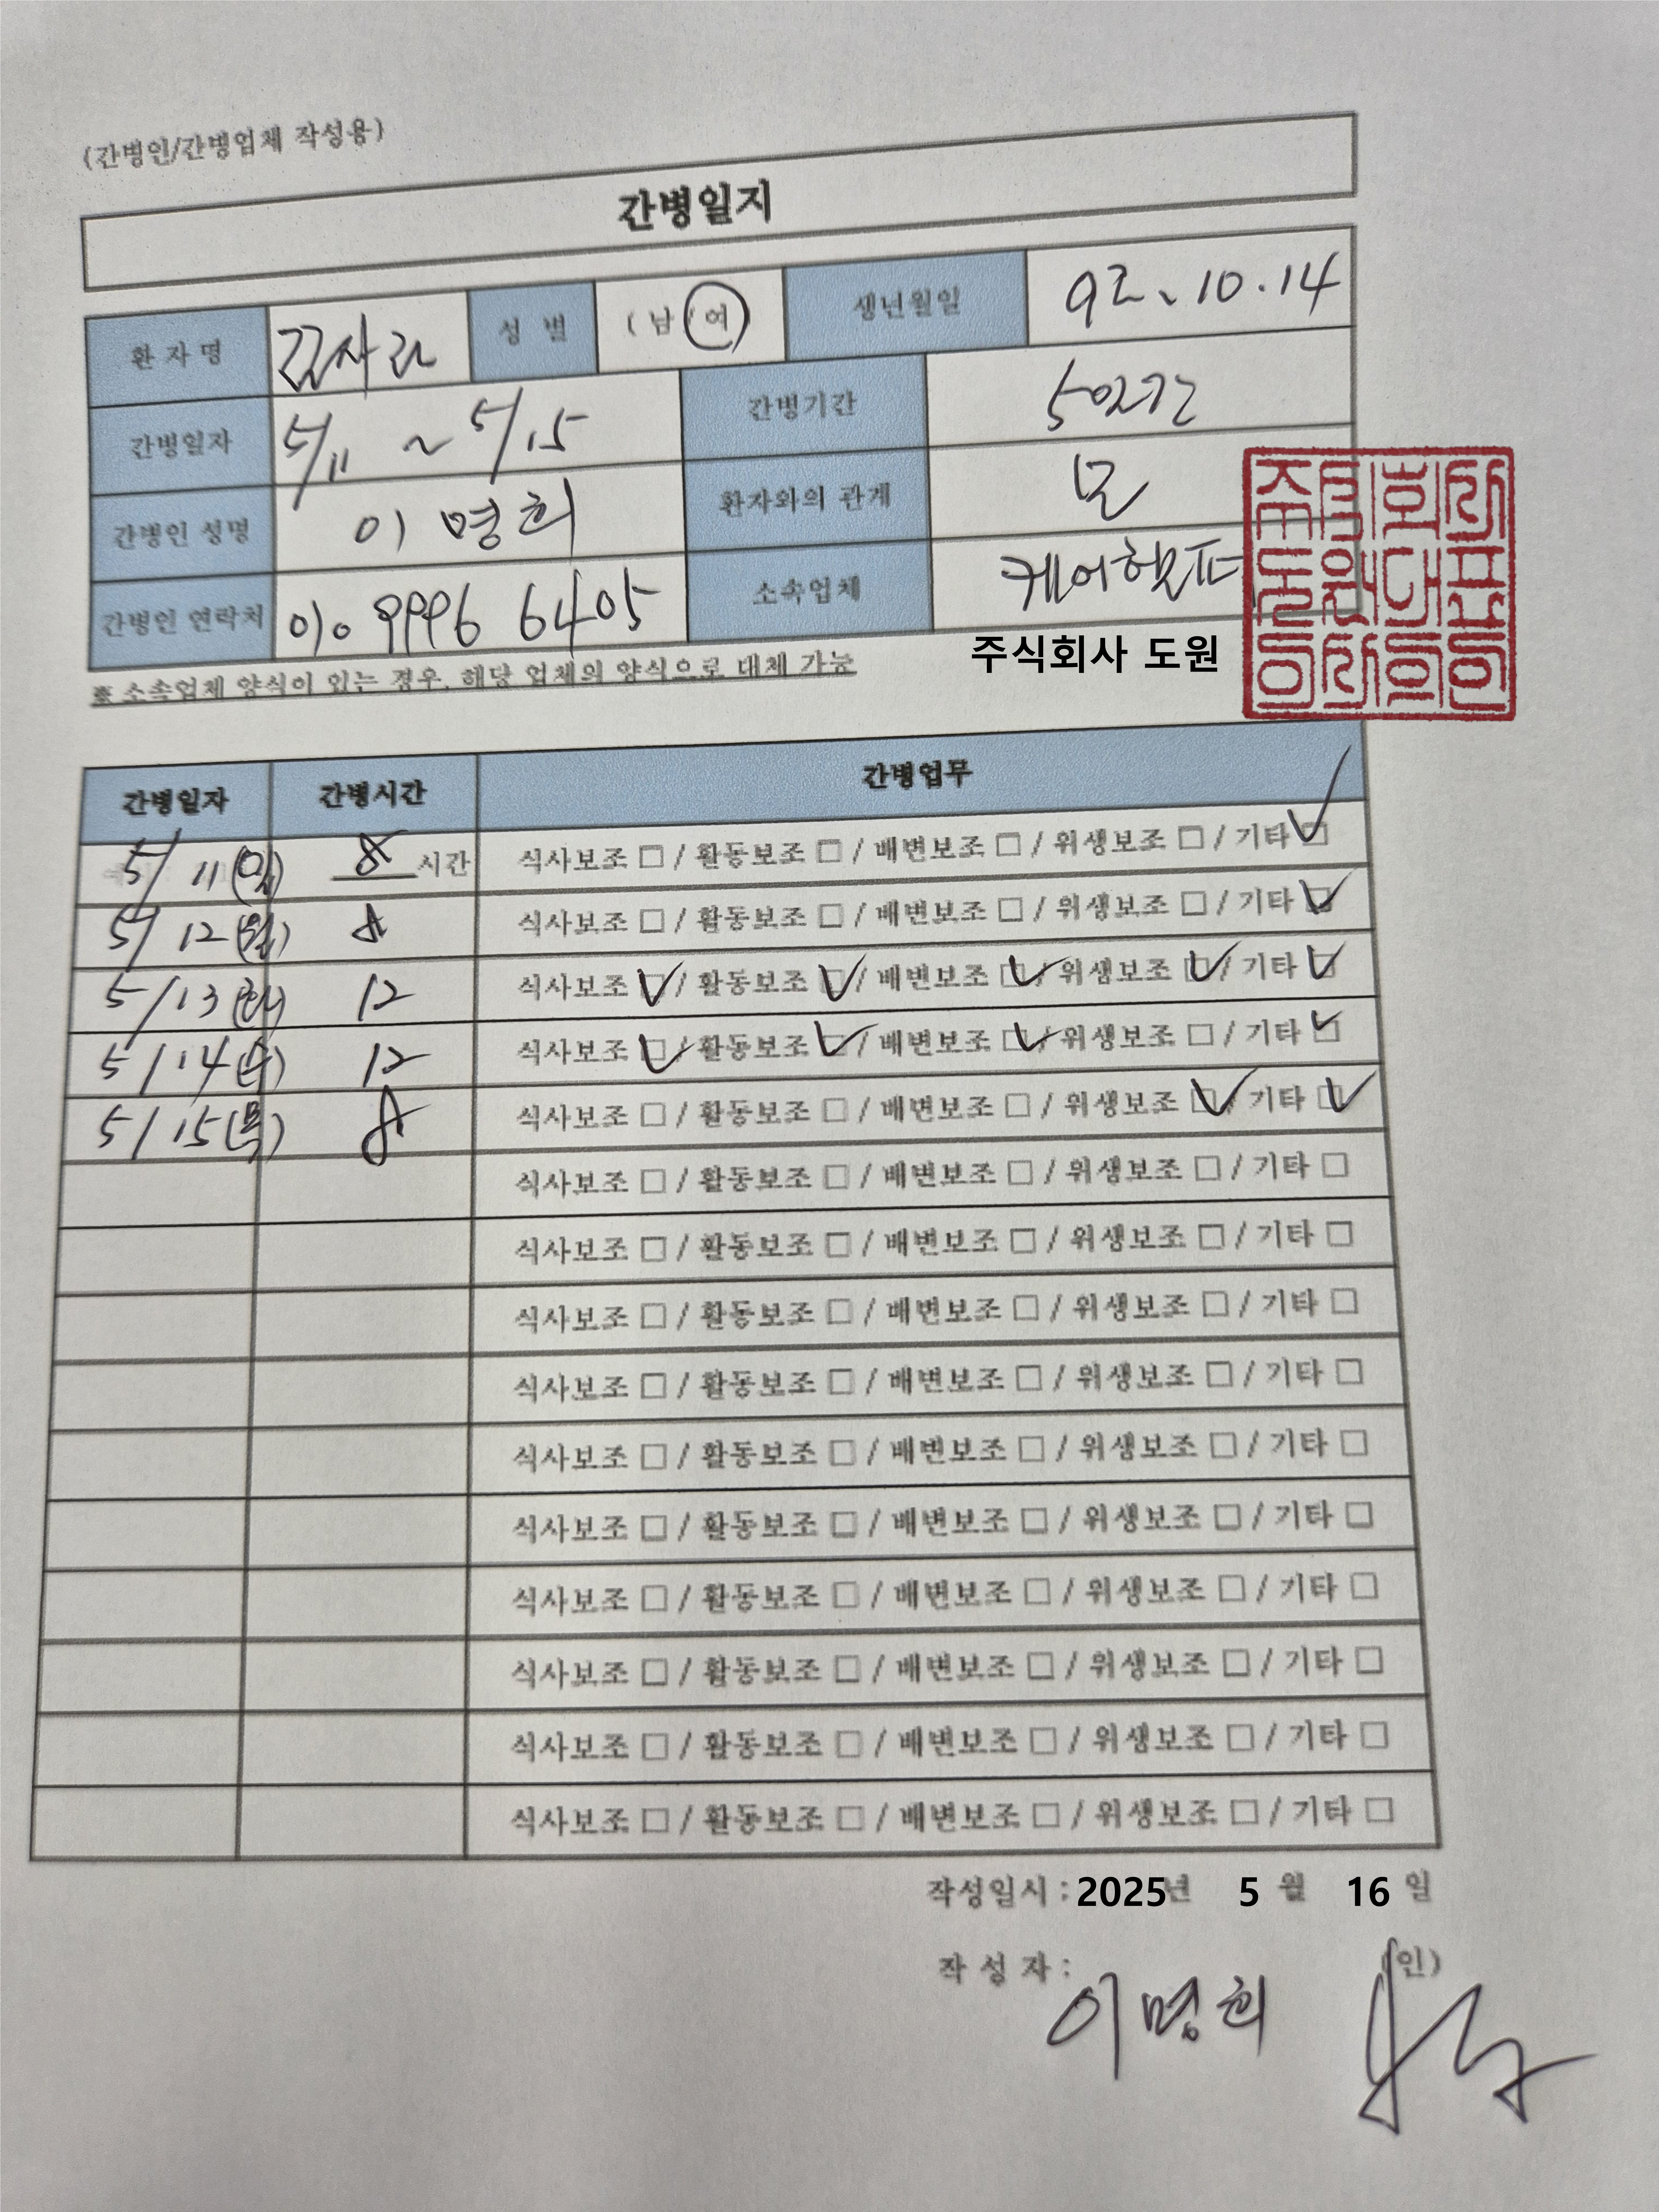 (간병인/간병업체 작성용)
간병일지
환 자 명 김사라 성 별 ( 남 / 여 ) 생년월일 92. 10. 14
간병일자 5/11 ~ 5/15 간병기간 5일간
간병인 성명 이명희 환자와의 관계 모
간병인 연락처 010 9996 6405 소속업체 케어헬퍼
주식회사 도원
※ 소속업체 양식이 있는 경우, 해당 업체의 양식으로 대체 가능
간병일자 간병시간 간병업무
5/11(일) 8 시간 식사보조 □ / 활동보조 □ / 배변보조 □ / 위생보조 □ / 기타 ☑
5/12(월) 8 식사보조 □ / 활동보조 □ / 배변보조 □ / 위생보조 □ / 기타 ☑
5/13(화) 12 식사보조 ☑ / 활동보조 ☑ / 배변보조 ☑ / 위생보조 ☑ / 기타 ☑
5/14(수) 12 식사보조 ☑ / 활동보조 ☑ / 배변보조 ☑ / 위생보조 □ / 기타 ☑
5/15(목) 8 식사보조 □ / 활동보조 □ / 배변보조 □ / 위생보조 ☑ / 기타 ☑
식사보조 □ / 활동보조 □ / 배변보조 □ / 위생보조 □ / 기타 □
식사보조 □ / 활동보조 □ / 배변보조 □ / 위생보조 □ / 기타 □
식사보조 □ / 활동보조 □ / 배변보조 □ / 위생보조 □ / 기타 □
식사보조 □ / 활동보조 □ / 배변보조 □ / 위생보조 □ / 기타 □
식사보조 □ / 활동보조 □ / 배변보조 □ / 위생보조 □ / 기타 □
식사보조 □ / 활동보조 □ / 배변보조 □ / 위생보조 □ / 기타 □
식사보조 □ / 활동보조 □ / 배변보조 □ / 위생보조 □ / 기타 □
식사보조 □ / 활동보조 □ / 배변보조 □ / 위생보조 □ / 기타 □
식사보조 □ / 활동보조 □ / 배변보조 □ / 위생보조 □ / 기타 □
식사보조 □ / 활동보조 □ / 배변보조 □ / 위생보조 □ / 기타 □
작성일시 : 2025년 5 월 16 일
작 성 자 : 이명희 (인)